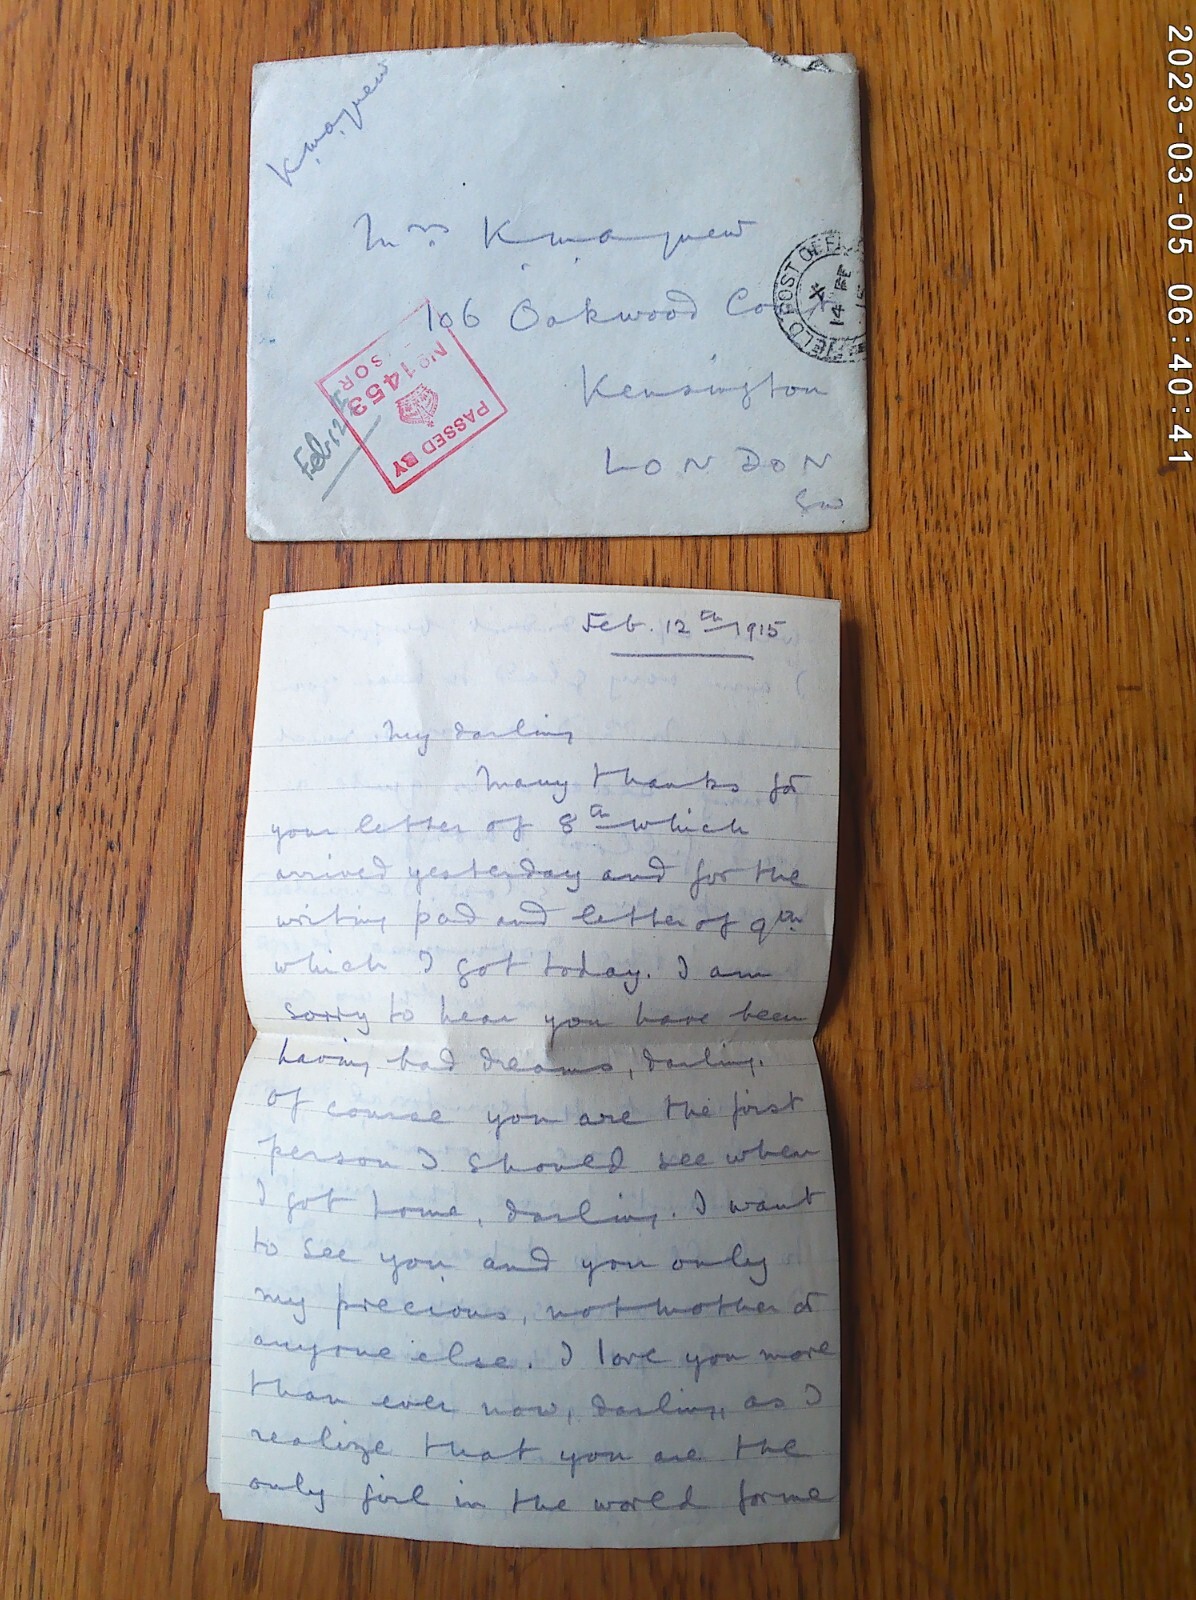 2023-03-05 06:40:41
K. Mayne
Mrs K. Mayne
106 Oakwood Court
Kensington
LONDON
SW
FIELD POST OFFICE
X
14 FE
15
PASSED BY
No 1453
SOR
Feb 12
Feb. 12th 1915
My darling
Many thanks for
your letter of 8th which
arrived yesterday and for the
writing pad and letter of 9th
which I got today. I am
sorry to hear you have been
having bad dreams, darling.
Of course you are the first
person I should see when
I got home, darling. I want
to see you and you only
my precious, not mother or
anyone else. I love you more
than ever now, darling, as I
realize that you are the
only girl in the world for me